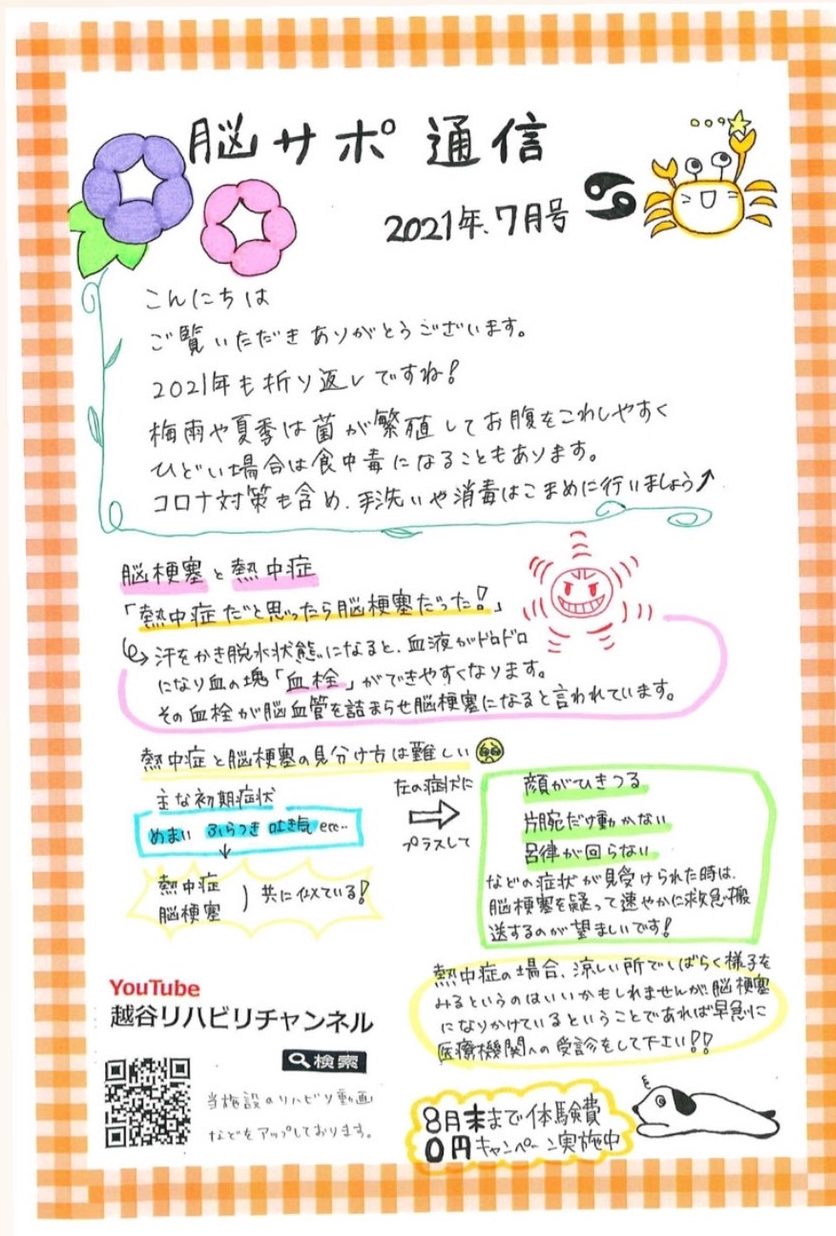 脳サポ通信
2021年.7月号
こんにちは
ご覧いただきありがとうございます。
2021年も折り返しですね!
梅雨や夏季は菌が繁殖してお腹をこわしやすく
ひどい場合は食中毒になることもあります。
コロナ対策も含め、手洗いや消毒はこまめに行いましょう↗
脳梗塞と熱中症
「熱中症だと思ったら脳梗塞だった!」
汗をかき脱水状態になると、血液がドロドロ
になり血の塊「血栓」ができやすくなります。
その血栓が脳血管を詰まらせ脳梗塞になると言われています。
熱中症と脳梗塞の見分け方は難しい
主な初期症状
めまい ふらつき 吐き気 etc..
↓
熱中症
脳梗塞
) 共に似ている!
左の症状に
⇒
プラスして
顔がひきつる
片腕だけ動かない
呂律が回らない
などの症状が見受けられた時は、
脳梗塞を疑って速やかに救急搬
送するのが望ましいです!
熱中症の場合、涼しい所でしばらく様子を
みるというのはいいかもしれませんが、脳梗塞
になりかけているということであれば早急に
医療機関への受診をして下さい!!
YouTube
越谷リハビリチャンネル
検索
当施設のリハビリ動画
などをアップしております。
8月末まで体験費
0円キャンペーン実施中